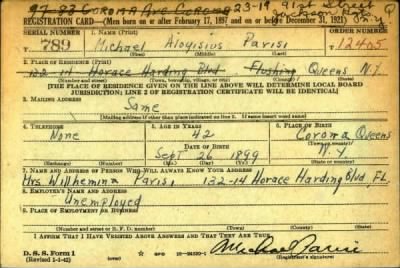 97-83 Corona Ave Corona 23-19 91st Street
REGISTRATION CARD—(Men born on or after February 17, 1897 and on or before December 31, 1921)
SERIAL NUMBER 1. NAME (Print) ORDER NUMBER
T 789 Michael Aloysisus Parisi T 12405
(First) (Middle) (Last)
2. PLACE OF RESIDENCE (Print)
132-14 Horace Harding Blvd Flushing Queens N.Y.
(Number and street) (Town, township, village, or city) (County) (State)
[THE PLACE OF RESIDENCE GIVEN ON THE LINE ABOVE WILL DETERMINE LOCAL BOARD
JURISDICTION; LINE 2 OF REGISTRATION CERTIFICATE WILL BE IDENTICAL]
3. MAILING ADDRESS
Same
[Mailing address if other than place indicated on line 2. If same insert word same]
4. TELEPHONE 5. AGE IN YEARS 6. PLACE OF BIRTH
None 42 Corona Queens
DATE OF BIRTH (Town or county)
Sept 26 1899 N.Y.
(Exchange) (Number) (Mo.) (Day) (Yr.) (State or country)
7. NAME AND ADDRESS OF PERSON WHO WILL ALWAYS KNOW YOUR ADDRESS
Mrs Wilhemina Parisi, 132-14 Horace Harding Blvd, FL.
8. EMPLOYER'S NAME AND ADDRESS
Unemployed
9. PLACE OF EMPLOYMENT OR BUSINESS
(Number and street or R. F. D. number) (Town) (County) (State)
I AFFIRM THAT I HAVE VERIFIED ABOVE ANSWERS AND THAT THEY ARE TRUE.
D. S. S. Form 1 Michael Parisi
(Revised 1-1-42) (over) (Registrant's signature)